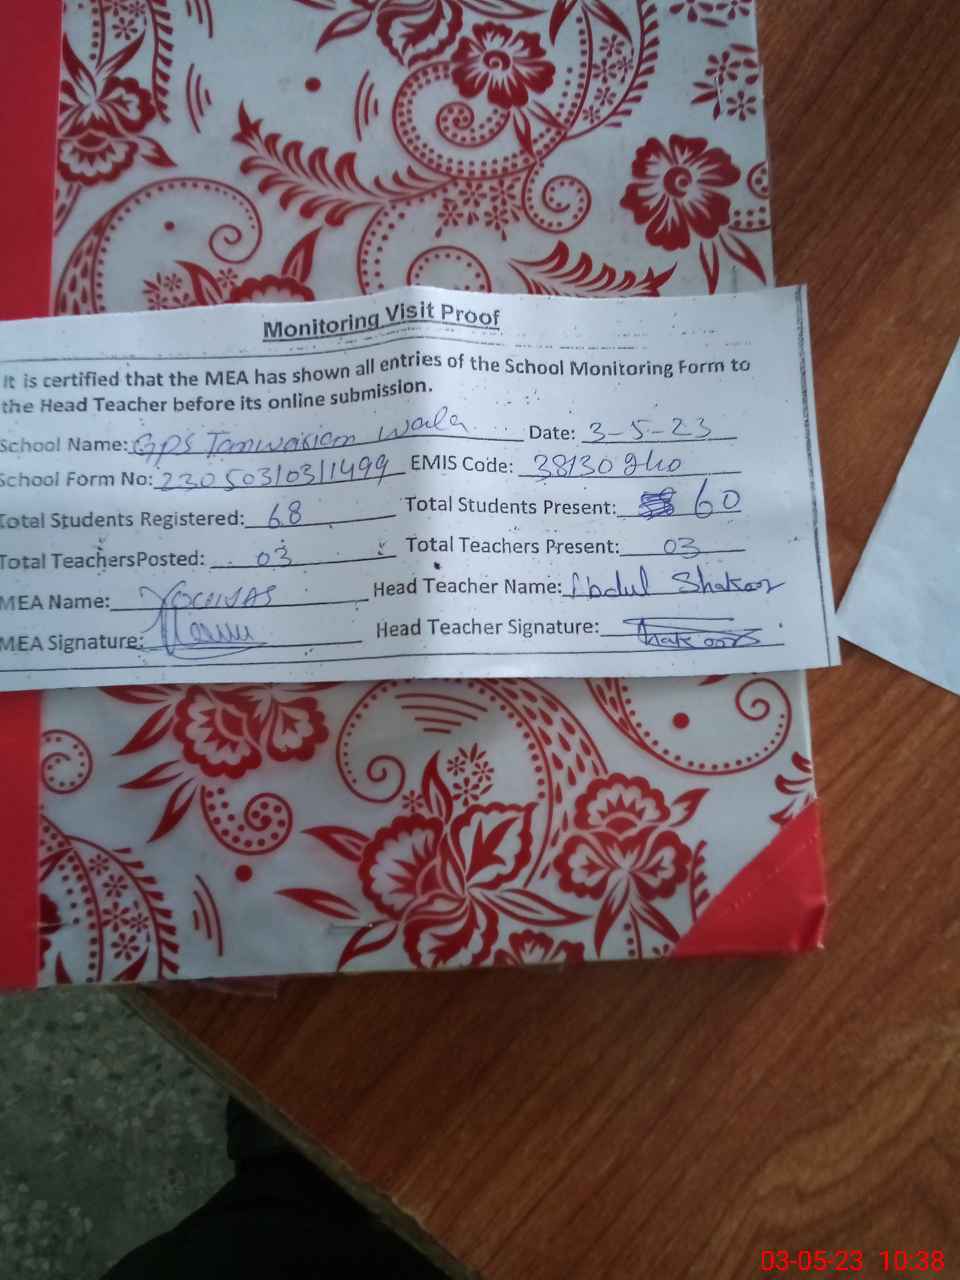 Monitoring Visit Proof
It is certified that the MEA has shown all entries of the School Monitoring Form to
the Head Teacher before its online submission.
School Name: GPS Tomwasiam Wala Date: 3-5-23
School Form No: 230503/03/1499 EMIS Code: 38130
Total Students Registered: 68 Total Students Present: 60
Total TeachersPosted: 03 Total Teachers Present: 03
MEA Name: Head Teacher Name: Abdul Shakoor
MEA Signature: Head Teacher Signature: Shakoor
03-05-23 10:38